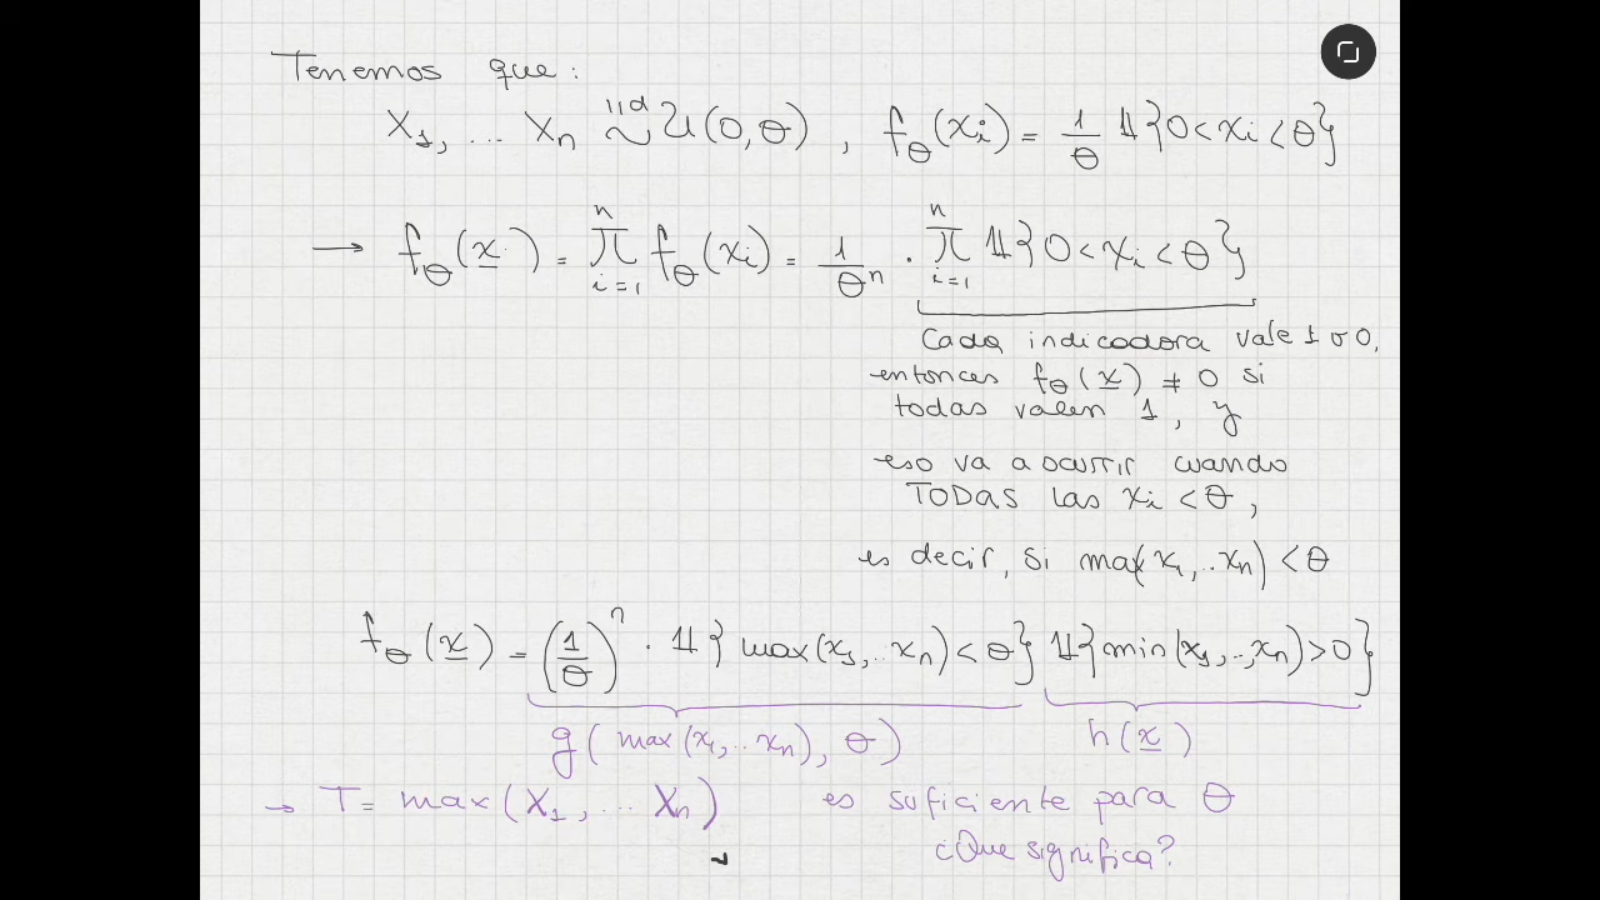 Tenemos que:
X₁, ... Xₙ iid ~ U(0,θ), f_θ(xᵢ) = 1/θ 𝟙{0<xᵢ<θ}
→ f_θ(x) = ∏ᵢ₌₁ⁿ f_θ(xᵢ) = 1/θⁿ · ∏ᵢ₌₁ⁿ 𝟙{0<xᵢ<θ}
Cada indicadora vale 1 o 0,
entonces f_θ(x) ≠ 0 si
todas valen 1, y
eso va a ocurrir cuando
TODAS las xᵢ < θ,
es decir, si max(x₁,..xₙ) < θ
f_θ(x) = (1/θ)ⁿ · 𝟙{max(x₁,..xₙ) < θ} 𝟙{min(x₁,..,xₙ)>0}
g(max(x₁,..xₙ), θ) h(x)
→ T = max(X₁, ... Xₙ) es suficiente para θ
¿Que significa?